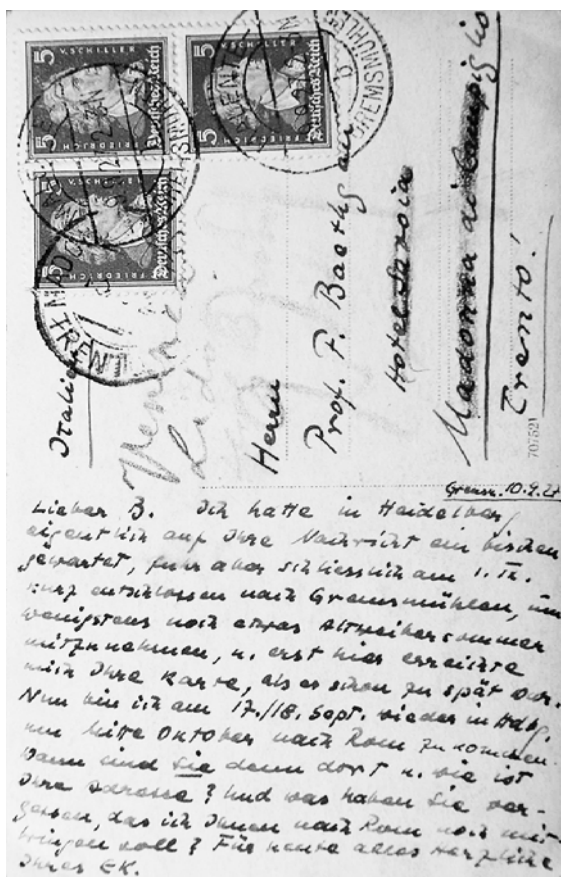 5 FRIEDRICH V. SCHILLER 5
Deutsches Reich
5 FRIEDRICH V. SCHILLER 5
Deutsches Reich
5 FRIEDRICH
Deutsches Reich
GREMSMÜHLEN
TRENT
Italien
Venezia
Lido
Herrn
Prof. F. Baethgen
Hotel Savoia
Madonna di Campiglio
Trento!
707521
Gremsm. 10.9.27
Lieber B. Ich hatte in Heidelberg
eigentlich auf Ihre Nachricht ein bischen
gewartet, fuhr aber schliesslich am 1. IX.
kurz entschlossen nach Gremsmühlen, um
wenigstens noch etwas Altweibersommer
mitzunehmen, u. erst hier erreichte
mich Ihre Karte, als es schon zu spät war.
Nun bin ich am 17./18. Sept. wieder in Hdbg.
um Mitte Oktober nach Rom zu kommen.
Wann sind Sie denn dort u. wie ist
Ihre Adresse? Und was haben Sie ver-
gessen, das ich Ihnen nach Rom noch mit-
bringen soll? Für heute alles Herzliche
Ihres EK.